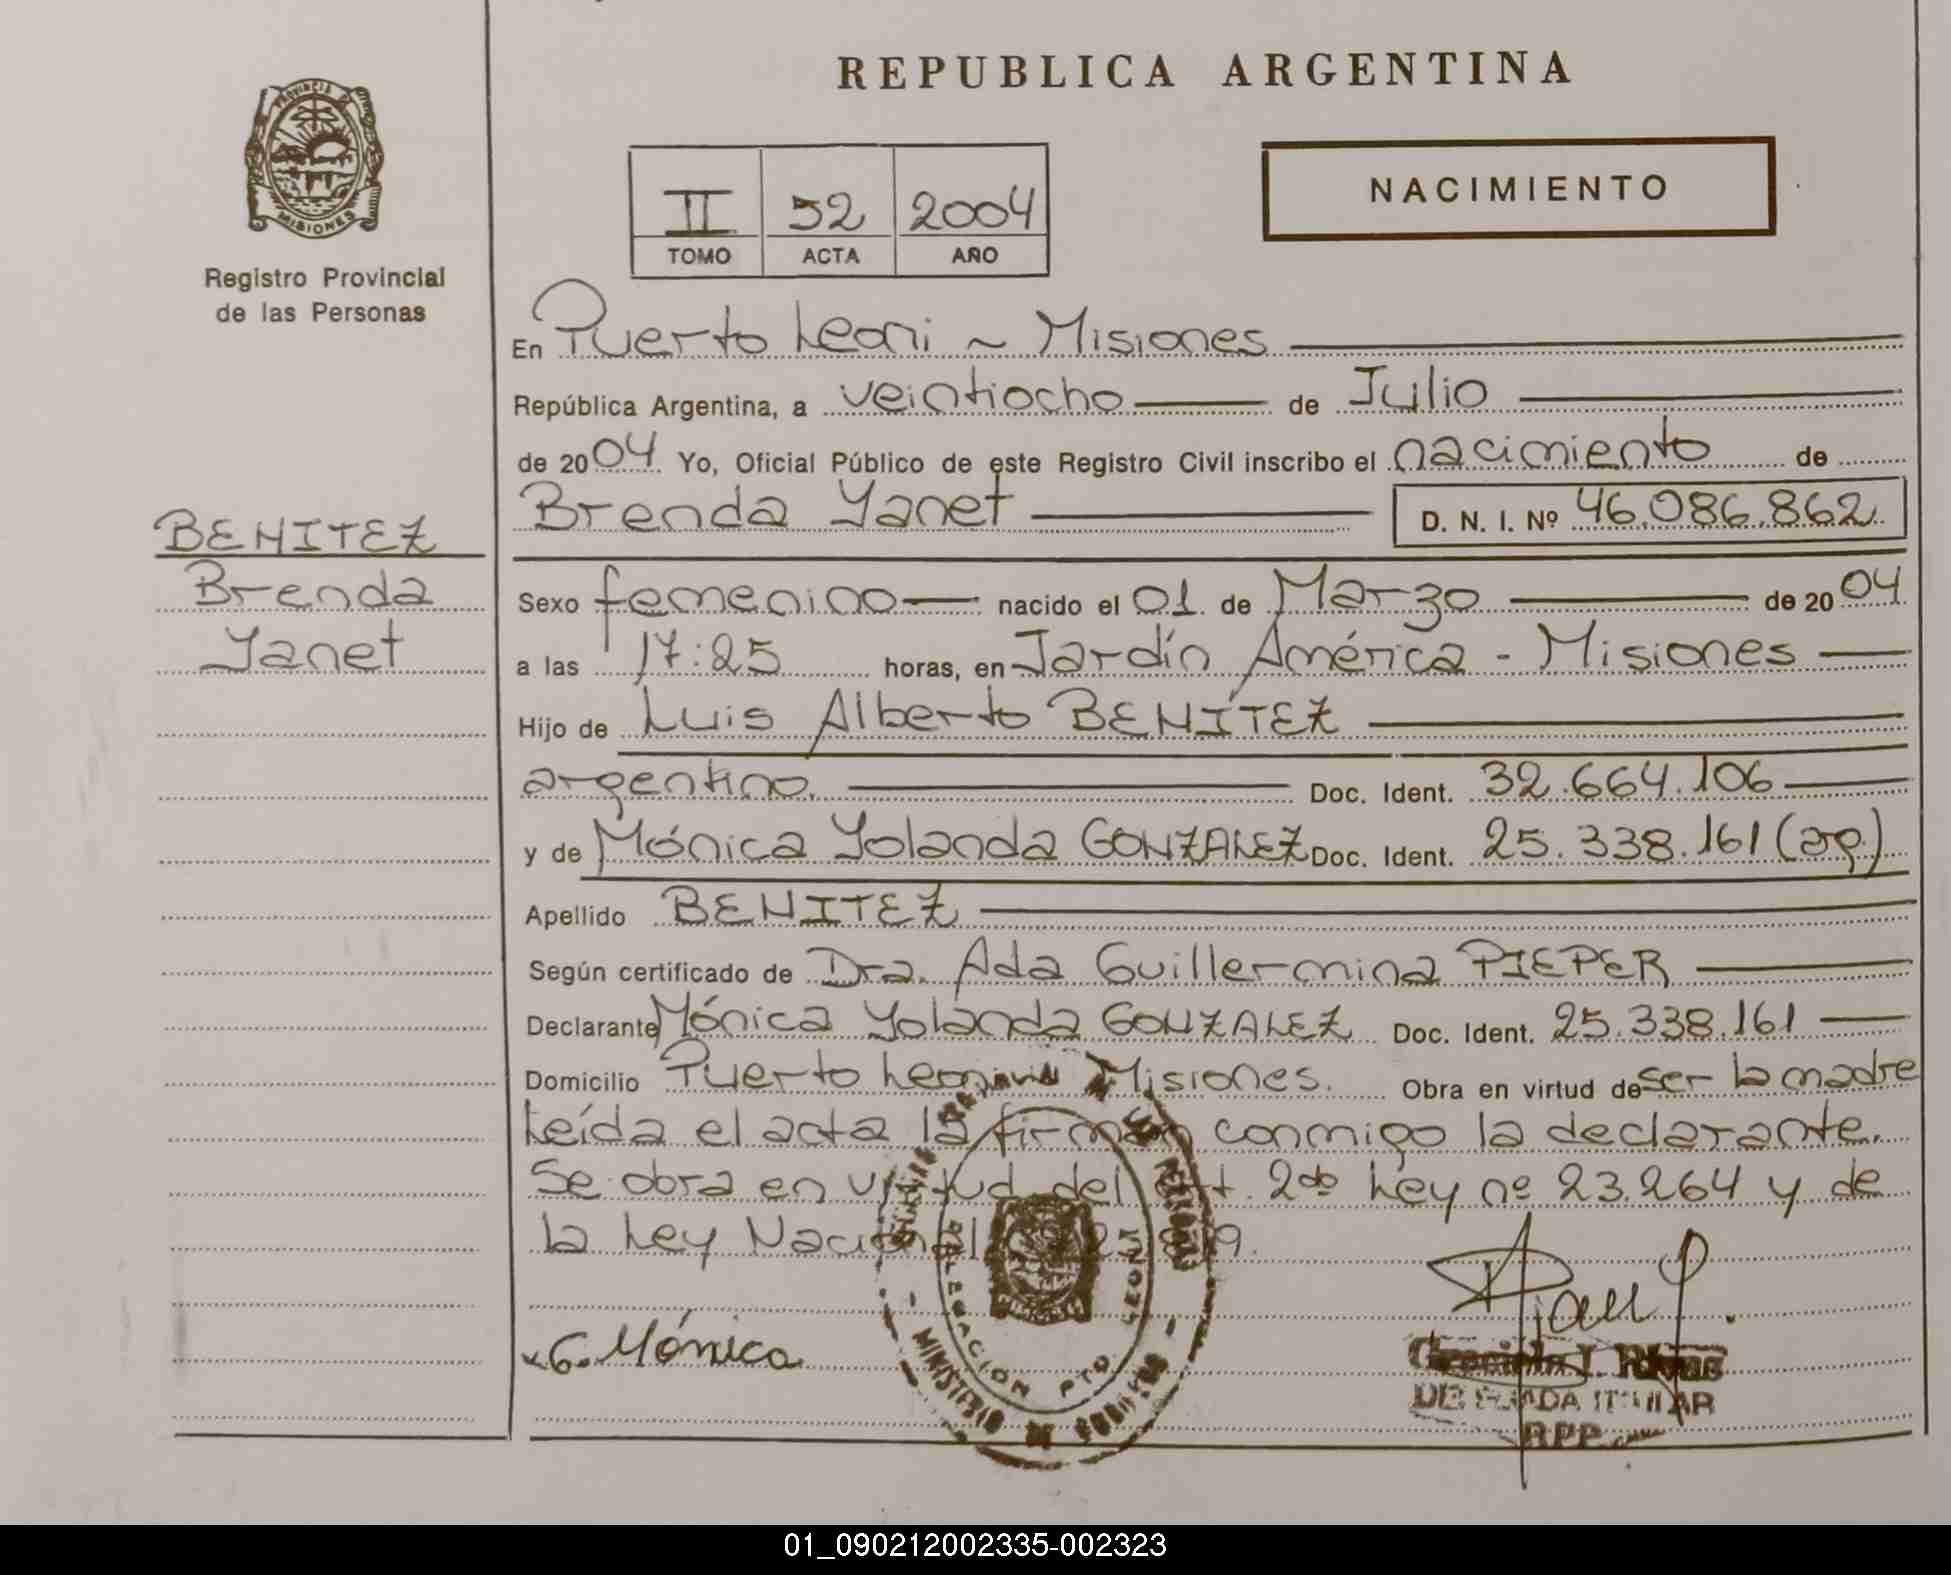 REPUBLICA ARGENTINA
PROVINCIA DE
MISIONES
Registro Provincial
de las Personas
II 52 2004
TOMO ACTA AÑO
NACIMIENTO
En Puerto Leoni ~ Misiones
República Argentina, a veintiocho de Julio
de 2004 Yo, Oficial Público de este Registro Civil inscribo el nacimiento de
Brenda Yanet D. N. I. Nº 46.086.862
BENITEZ
Brenda
Yanet
Sexo femenino nacido el 01 de Marzo de 2004
a las 17:25 horas, en Jardín América - Misiones
Hijo de Luis Alberto BENÍTEZ
argentino. Doc. Ident. 32.664.106
y de Mónica Yolanda GONZALEZ Doc. Ident. 25.338.161 (arg)
Apellido BENITEZ
Según certificado de Dra. Ada Guillermina PIEPER
Declarante Mónica Yolanda GONZALEZ Doc. Ident. 25.338.161
Domicilio Puerto Leoni Misiones. Obra en virtud de ser la madre
Leída el acta la firman conmigo la declarante.
Se obra en virtud del Art. 2do Ley nº 23.264 y de
la Ley Nacional
G. Mónica
DELEGACION PTO. LEONI
MINISTERIO DE GOBIERNO
DELEGADA TITULAR
RPP
01_090212002335-002323